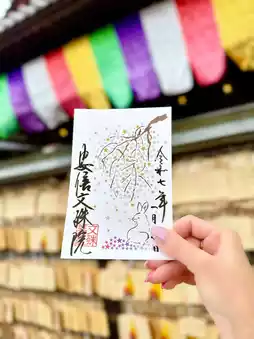 令和七年 月 日
安倍文殊院
文殊